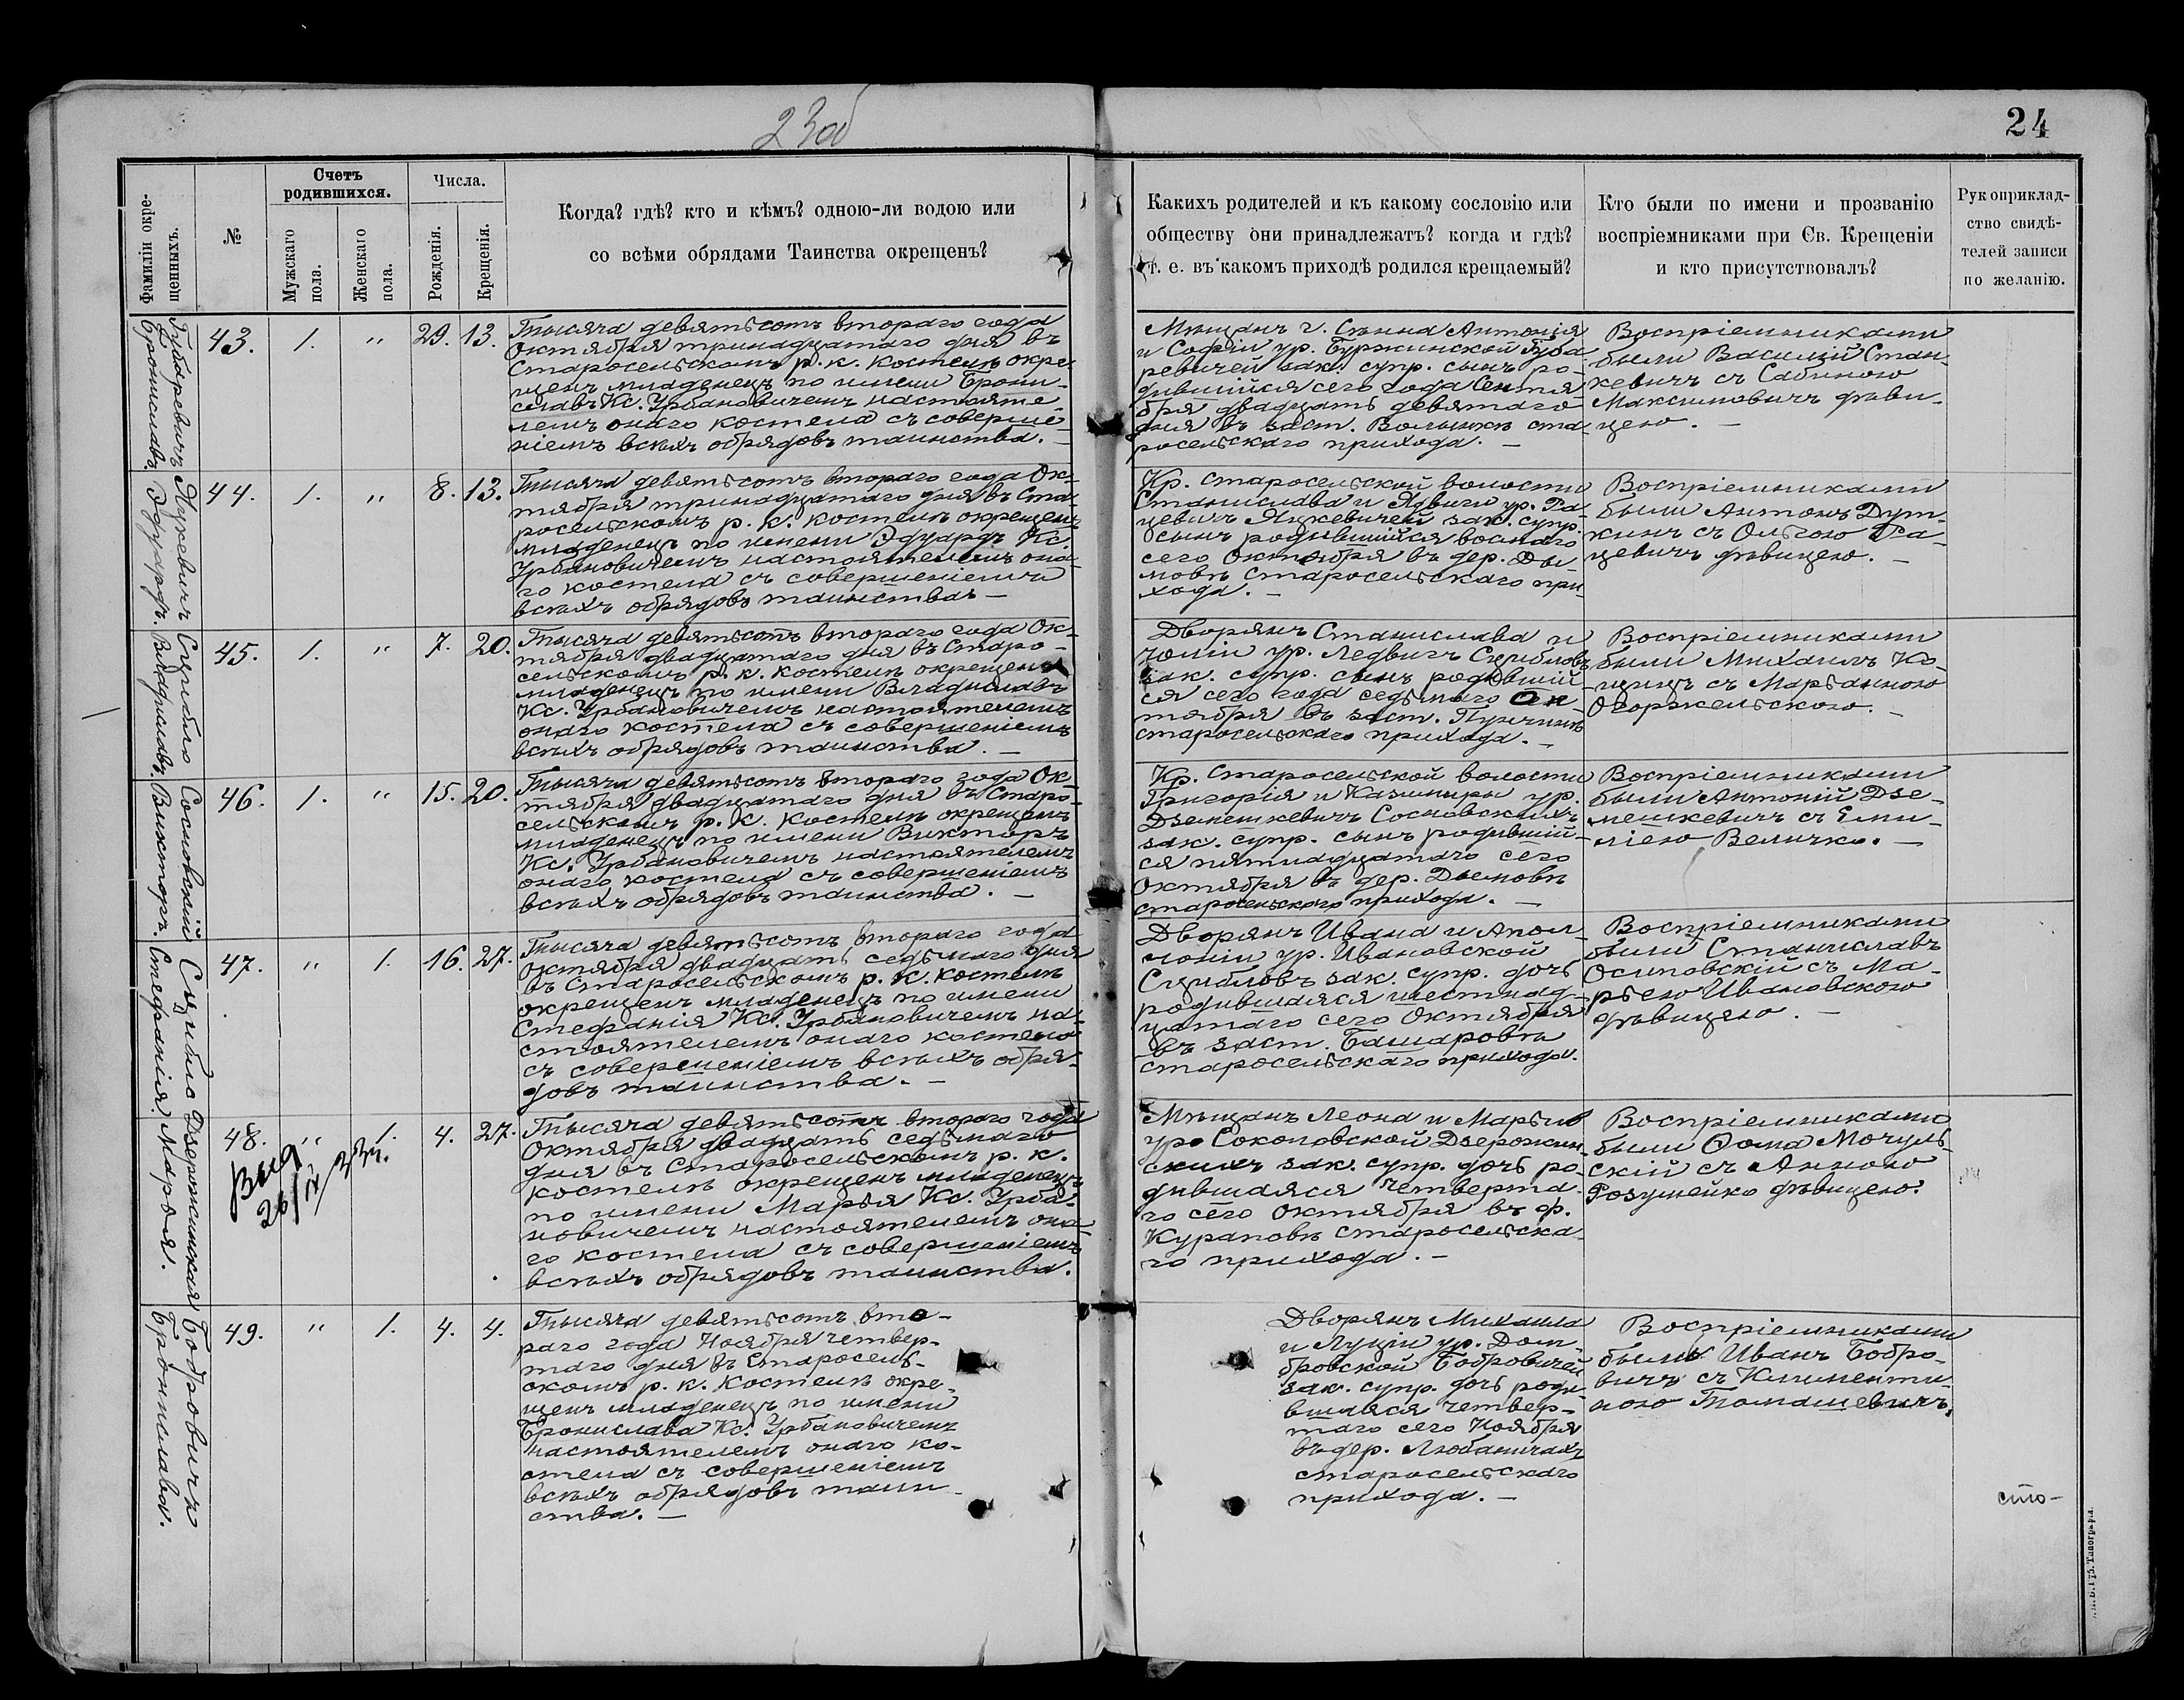 23об
24
Фамиліи окре-
щенныхъ.
№
Счетъ
родившихся.
Мужскаго
пола.
Женскаго
пола.
Числа.
Рожденія.
Крещенія.
Когда? гдѣ? кто и кѣмъ? одною-ли водою или
со всѣми обрядами Таинства окрещенъ?
Какихъ родителей и къ какому сословію или
обществу они принадлежатъ? когда и гдѣ?
т. е. въ какомъ приходѣ родился крещаемый?
Кто были по имени и прозванію
воспріемниками при Св. Крещеніи
и кто присутствовалъ?
Рукоприклад-
ство свидѣ-
телей записи
по желанію.
Губаревичъ
Брониславъ.
43. 1. " 29. 13.
Тысяча девятьсотъ второго года
Октября тринадцатаго дня въ
Старосельскомъ р. к. костелѣ окре-
щенъ младенецъ по имени Брони-
славъ Кс. Урбановичемъ настояте-
лемъ онаго костела съ соверше-
ніемъ всѣхъ обрядовъ таинства. —
Мѣщанъ г. Сѣнна Антонія
и Софіи ур. Буржинской Губа-
ревичей зак. супр. сынъ ро-
дившійся сего года Сентя-
бря двадцать девятаго
дня въ заст. Волынкѣ ста-
росельскаго прихода. —
Воспріемниками
были Василій Стан-
кевичъ съ Сабиною
Максимовичъ дѣви-
цею. —
Яцкевичъ
Эдуардъ.
44. 1. " 8. 13.
Тысяча девятьсотъ второго года Ок-
тября тринадцатаго дня въ Ста-
росельскомъ р. к. костелѣ окрещенъ
младенецъ по имени Эдуардъ Кс.
Урбановичемъ настоятелемъ она-
го костела съ совершеніемъ
всѣхъ обрядовъ таинства —
Кр. Старосельской волости
Станислава и Ядвиги ур. Ра-
цевичъ Яцкевичей зак. супр.
сынъ родившійся восьмаго
сего Октября въ дер. Ды-
мовѣ Старосельскаго при-
хода. —
Воспріемниками
были Антонъ Дут-
кинъ съ Ольгою Ра-
цевичъ дѣвицею. —
Сцибло
Владиславъ.
45. 1. " 7. 20.
Тысяча девятьсотъ второго года Ок-
тября двадцатаго дня въ Старо-
сельскомъ р. к. костелѣ окрещенъ
младенецъ по имени Владиславъ
Кс. Урбановичемъ настоятелемъ
онаго костела съ совершеніемъ
всѣхъ обрядовъ таинства. —
Дворянъ Станислава и
Юліи ур. Ледвигъ Сцибловъ
зак. супр. сынъ родившій-
ся сего года седьмаго Ок-
тября въ заст.
старосельскаго прихода. —
Воспріемниками
были Михаилъ Ко-
съ Марьянною
Огоржельскою. —
Сосновскій
Викторъ.
46. 1. " 15. 20.
Тысяча девятьсотъ второго года Ок-
тября двадцатаго дня въ Старо-
сельскомъ р. к. костелѣ окрещенъ
младенецъ по имени Викторъ
Кс. Урбановичемъ настоятелемъ
онаго костела съ совершеніемъ
всѣхъ обрядовъ таинства. —
Кр. Старосельской волости
Григорія и Казимиры ур.
Дземешкевичъ Сосновскихъ
зак. супр. сынъ родившій-
ся пятнадцатаго сего
Октября въ дер. Дымовѣ
старосельского прихода. —
Воспріемниками
были Антоній Дзе-
мешкевичъ съ Еми-
ліею Величко. —
Сцибло
Стефанія.
47. " 1. 16. 27.
Тысяча девятьсотъ второго года
Октября двадцать седьмого дня
въ Старосельскомъ р. к. костелѣ
окрещенъ младенецъ по имени
Стефанія Кс. Урбановичемъ на-
стоятелемъ онаго костела
съ совершеніемъ всѣхъ обря-
довъ таинства. —
Дворянъ Ивана и Апол-
лоніи ур. Ивановской
Сцибловъ зак. супр. дочь
родившаяся шестнад-
цатаго сего Октября
въ заст. Башаровѣ
старосельскаго прихода.
Воспріемниками
были Станиславъ
Осиповскій съ Ма-
рьею Ивановскою
дѣвицею. —
Дзержинская
Марья.
48. " 1. 4. 27.
Выд
26/IV 23г.
Тысяча девятьсотъ второго года
Октября двадцать седьмаго
дня въ Старосельскомъ р. к.
костелѣ окрещенъ младенецъ
по имени Марья Кс. Урба-
новичемъ настоятелемъ она-
го костела съ совершеніемъ
всѣхъ обрядовъ таинства.
Мѣщанъ Леона и Марьи
ур. Соколовской Дзержин-
скихъ зак. супр. дочь ро-
дившаяся четверта-
го сего Октября въ ф.
Кураповѣ старосельска-
го прихода. —
Воспріемниками
были Фома Мочуль-
скій съ Анною
Розумейко дѣвицею.
Бобровичъ
Бронислава.
49. " 1. 4. 4.
Тысяча девятьсотъ вто-
раго года Ноября четвер-
таго дня въ Старосель-
скомъ р. к. костелѣ окре-
щенъ младенецъ по имени
Бронислава Кс. Урбановичемъ
настоятелемъ онаго ко-
стела съ совершеніемъ
всѣхъ обрядовъ таин-
ства. —
Дворянъ Михаила
и Луціи ур. Дом-
бровской Бобровичей
зак. супр. дочь роди-
вшаяся четвер-
таго сего Ноября
въ дер. Любаничахъ
старосельскаго
прихода. —
Воспріемниками
были Иванъ Бобро-
вичъ съ Клименти-
ною Томашевичъ.
сто-